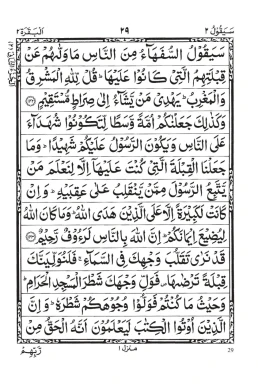 سَيَقُوْلُ ٢ ٢٩ اَلْبَقَرَة ٢
سَيَقُوْلُ السُّفَهَآءُ مِنَ النَّاسِ مَا وَلّٰىهُمْ عَنْ
قِبْلَتِهِمُ الَّتِىْ كَانُوْا عَلَيْهَا ؕ قُلْ لِّلّٰهِ الْمَشْرِقُ
وَالْمَغْرِبُ ؕ يَهْدِىْ مَنْ يَّشَآءُ اِلٰى صِرَاطٍ مُّسْتَقِيْمٍ ﴿۱۴۲﴾
وَكَذٰلِكَ جَعَلْنٰكُمْ اُمَّةً وَّسَطًا لِّتَكُوْنُوْا شُهَدَآءَ
عَلَى النَّاسِ وَيَكُوْنَ الرَّسُوْلُ عَلَيْكُمْ شَهِيْدًا ؕ وَمَا
جَعَلْنَا الْقِبْلَةَ الَّتِىْ كُنْتَ عَلَيْهَآ اِلَّا لِنَعْلَمَ مَنْ
يَّتَّبِعُ الرَّسُوْلَ مِمَّنْ يَّنْقَلِبُ عَلٰى عَقِبَيْهِ ؕ وَاِنْ
كَانَتْ لَكَبِيْرَةً اِلَّا عَلَى الَّذِيْنَ هَدَى اللّٰهُ ؕ وَمَا كَانَ اللّٰهُ
لِيُضِيْعَ اِيْمَانَكُمْ ؕ اِنَّ اللّٰهَ بِالنَّاسِ لَرَءُوْفٌ رَّحِيْمٌ ﴿۱۴۳﴾
قَدْ نَرٰى تَقَلُّبَ وَجْهِكَ فِى السَّمَآءِ ۚ فَلَنُوَلِّيَنَّكَ
قِبْلَةً تَرْضٰىهَا ۪ فَوَلِّ وَجْهَكَ شَطْرَ الْمَسْجِدِ الْحَرَامِ ؕ
وَحَيْثُ مَا كُنْتُمْ فَوَلُّوْا وُجُوْهَكُمْ شَطْرَهٗ ؕ وَاِنَّ
الَّذِيْنَ اُوْتُوا الْكِتٰبَ لَيَعْلَمُوْنَ اَنَّهُ الْحَقُّ مِنْ
رَّبِّهِمْ منزل ١ 29